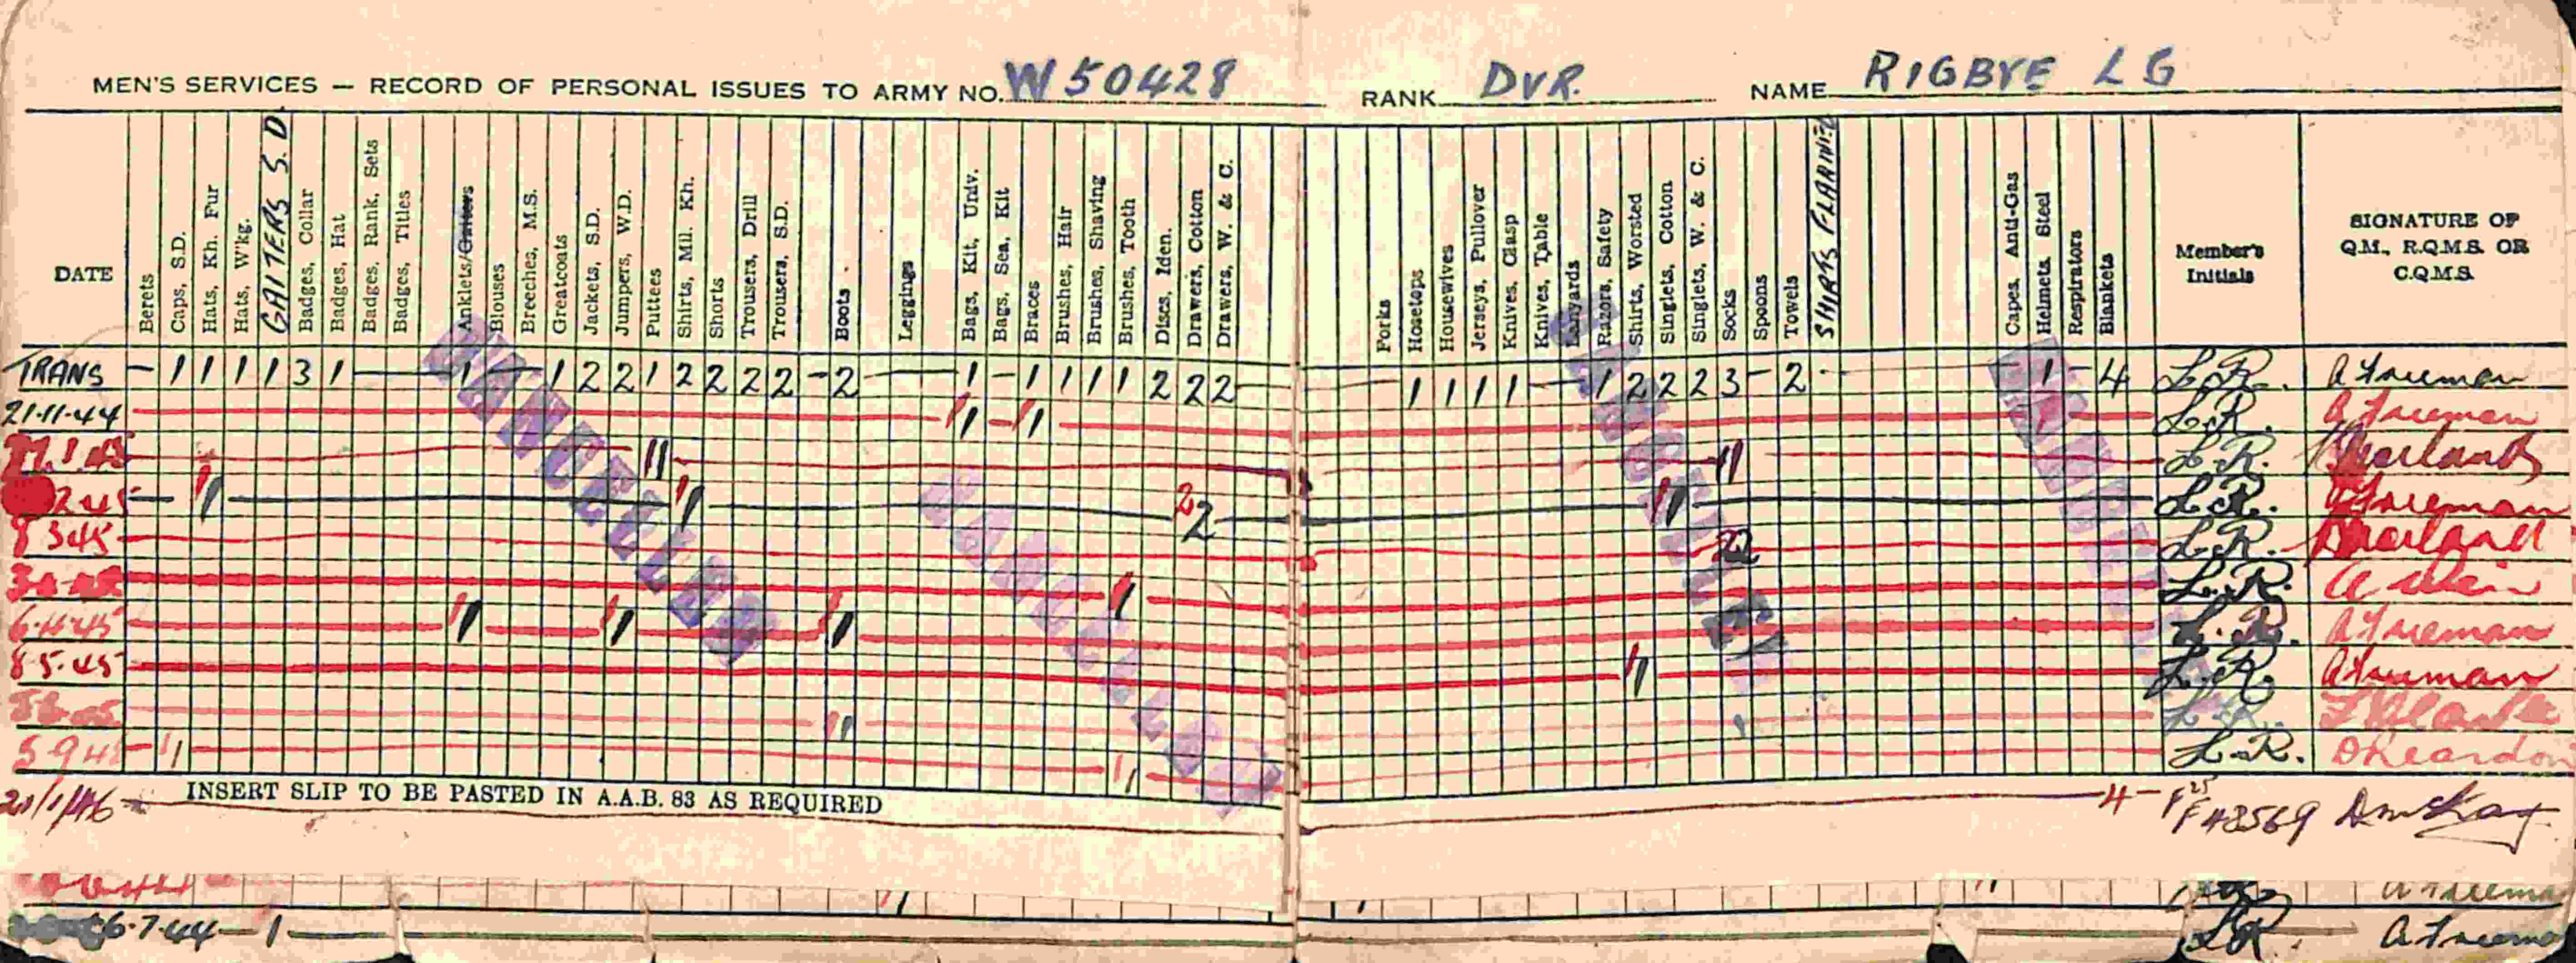 MEN'S SERVICES — RECORD OF PERSONAL ISSUES TO ARMY NO. W50428 RANK DVR. NAME RIGBYE L G
DATE
Berets
Caps, S.D.
Hats, Kh. Fur
Hats, W'kg.
GAITERS S.D
Badges, Collar
Badges, Hat
Badges, Rank, Sets
Badges, Titles
Anklets/Gaiters
Blouses
Breeches, M.S.
Greatcoats
Jackets, S.D.
Jumpers, W.D.
Puttees
Shirts, Mil. Kh.
Shorts
Trousers, Drill
Trousers, S.D.
Boots
Leggings
Bags, Kit, Univ.
Bags, Sea, Kit
Braces
Brushes, Hair
Brushes, Shaving
Brushes, Tooth
Discs, Iden.
Drawers, Cotton
Drawers, W. & C.
Forks
Hosetops
Housewives
Jerseys, Pullover
Knives, Clasp
Knives, Table
Lanyards
Razors, Safety
Shirts, Worsted
Singlets, Cotton
Singlets, W. & C.
Socks
Spoons
Towels
SHIRTS FLANNEL
Capes, Anti-Gas
Helmets, Steel
Respirators
Blankets
Member's Initials
SIGNATURE OF Q.M., R.Q.M.S. OR C.Q.M.S.
TRANS — 1 1 1 1 3 1 — 1 — 1 2 2 1 2 2 2 2 - 2 — 1 - 1 1 1 1 2 2 2 — 1 1 1 1 — 1 2 2 2 3 - 2 - 1 - 4 L.R. A Freeman
21·11·44 1 1 — 1 1 L.R. A Freeman
1 1 11 L.R.
2 45 — 1 1 1 1 2 2 1 1 L.R. A Freeman
8 3 45 2 2 L.R.
1 1 L.R.
6·4·45 1 1 1 1 1 1 L.R. A Freeman
8 5·45 1 1 L.R. A Freeman
1 1
5 9 45 1 1 1 1 L.R. D Reardon
CANCELLED
CANCELLED
CANCELLED
CANCELLED
INSERT SLIP TO BE PASTED IN A.A.B. 83 AS REQUIRED
21/1/46 4 -
1 1 A Freeman
6·7·44 — 1 — L.R. A Freeman